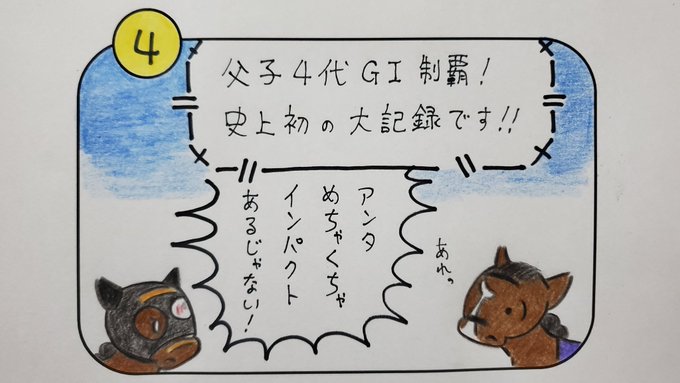 4
父子4代GI制覇!
史上初の大記録です!!
アンタ
めちゃくちゃ
インパクト
あるじゃない!
あれっ